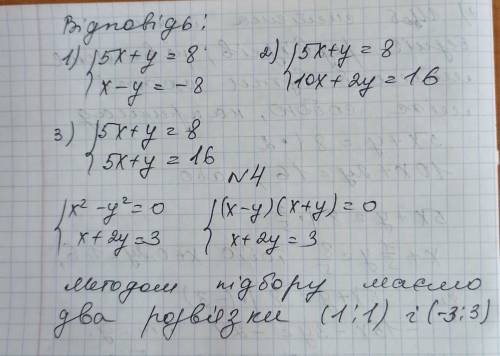 Відповідь:
1) {5x+y=8 2) {5x+y=8
x-y=-8 10x+2y=16
3) {5x+y=8
5x+y=16
N4
{x²-y²=0 {(x-y)(x+y)=0
x+2y=3 x+2y=3
Методом підбору маємо
два розв'язки (1;1) і (-3;3)